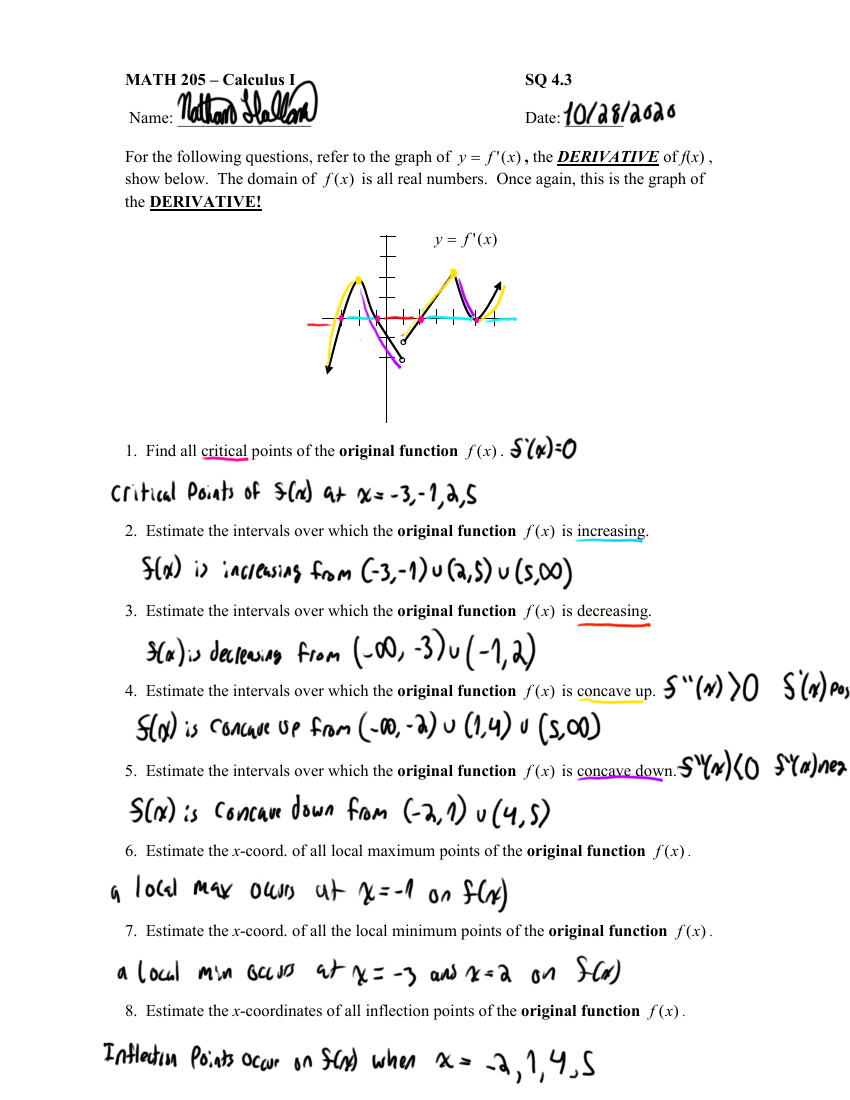 MATH 205 – Calculus I SQ 4.3
Name: Date: 10/28/2020
For the following questions, refer to the graph of y = f'(x), the DERIVATIVE of f(x),
show below. The domain of f(x) is all real numbers. Once again, this is the graph of
the DERIVATIVE!
y = f'(x)
1. Find all critical points of the original function f(x). f'(x)=0
Critical Points of f(x) at x = -3,-1,2,5
2. Estimate the intervals over which the original function f(x) is increasing.
f(x) is increasing from (-3,-1) ∪ (2,5) ∪ (5,∞)
3. Estimate the intervals over which the original function f(x) is decreasing.
f(x) is decreasing from (-∞, -3) ∪ (-1, 2)
4. Estimate the intervals over which the original function f(x) is concave up. f''(x)>0 f'(x) pos
f(x) is concave up from (-∞, -2) ∪ (1,4) ∪ (5,∞)
5. Estimate the intervals over which the original function f(x) is concave down. f''(x)<0 f'(x) neg
f(x) is concave down from (-2,1) ∪ (4,5)
6. Estimate the x-coord. of all local maximum points of the original function f(x).
a local max occurs at x = -1 on f(x)
7. Estimate the x-coord. of all the local minimum points of the original function f(x).
a local min occurs at x = -3 and x=2 on f(x)
8. Estimate the x-coordinates of all inflection points of the original function f(x).
Inflection Points occur on f(x) when x = -2,1,4,5